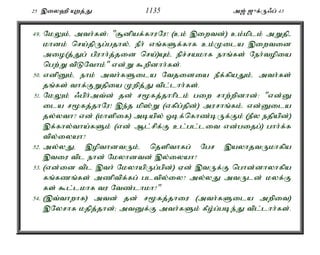 25 இலைஹி யுறத்து 1135 அஜ்ஜுக்ருஃப் 43
49. மேலும், அவர்கள்: "சூனியக்காரரே! (உம் இறைவன்) உம்மிடம் அறுதி,
மானம் செய்திருப்பதால், நீர் எங்களுக்காக உம்முடைய இறைவனை
அழை(த்துப் பிரார்த்தனை செய்)யும், நிச்சயமாக நாங்கள் நேர்வழியை
பெற்று விடுவோம்" என்று கூறினார்கள்.
50. எனினும், நாம் அவர்களுடைய வேதனையை நீக்கியதும், அவர்கள்
தங்கள் வாக்குறுதியை முறித்து விட்டார்கள்.
51. மேலும் ஃபிர்அவ்ன் தன் சமூகத்தாரிடம் பறை சாற்றினான்: "என்னு
டைய சமூகத்தாரே! இந்த மிஸ்று (எகிப்தின்) அரசாங்கம். என்னுடைய
தல்லவா? என் (மாளிகை) அடியில் ஓடிக்கொண்டிருக்கும் (நீல நதியின்)
இக்கால்வாய்களும் (என் ஆட்சிக்கு உட்பட்டவை என்பதைப்) பார்க்க
வில்லையா?
52. அல்லது, இழிவானவரும், தெளிவாகப் பேச இயலாதவருமாகிய
இவரை விட நான் மேலானவன் இல்லையா?
53. (என்னை விட இவர் மேலாயிருப்பின்) ஏன் இவருக்கு பொன்னாலாகிய
கங்கணங்கள் அணிவிக்கப் படவில்லை? அல்லது அவருடன் மலக்கு
கள் கூட்டமாக வர வேண்டாமா?"
54. (இவ்வாறாக) அவன் தன் சமூகத்தாரை (அவர்களுடைய அறிவை)
இலேசாக மதித்தான்; அவனுக்கு அவர்களும் கீழ்ப்படிந்து விட்டார்கள்.